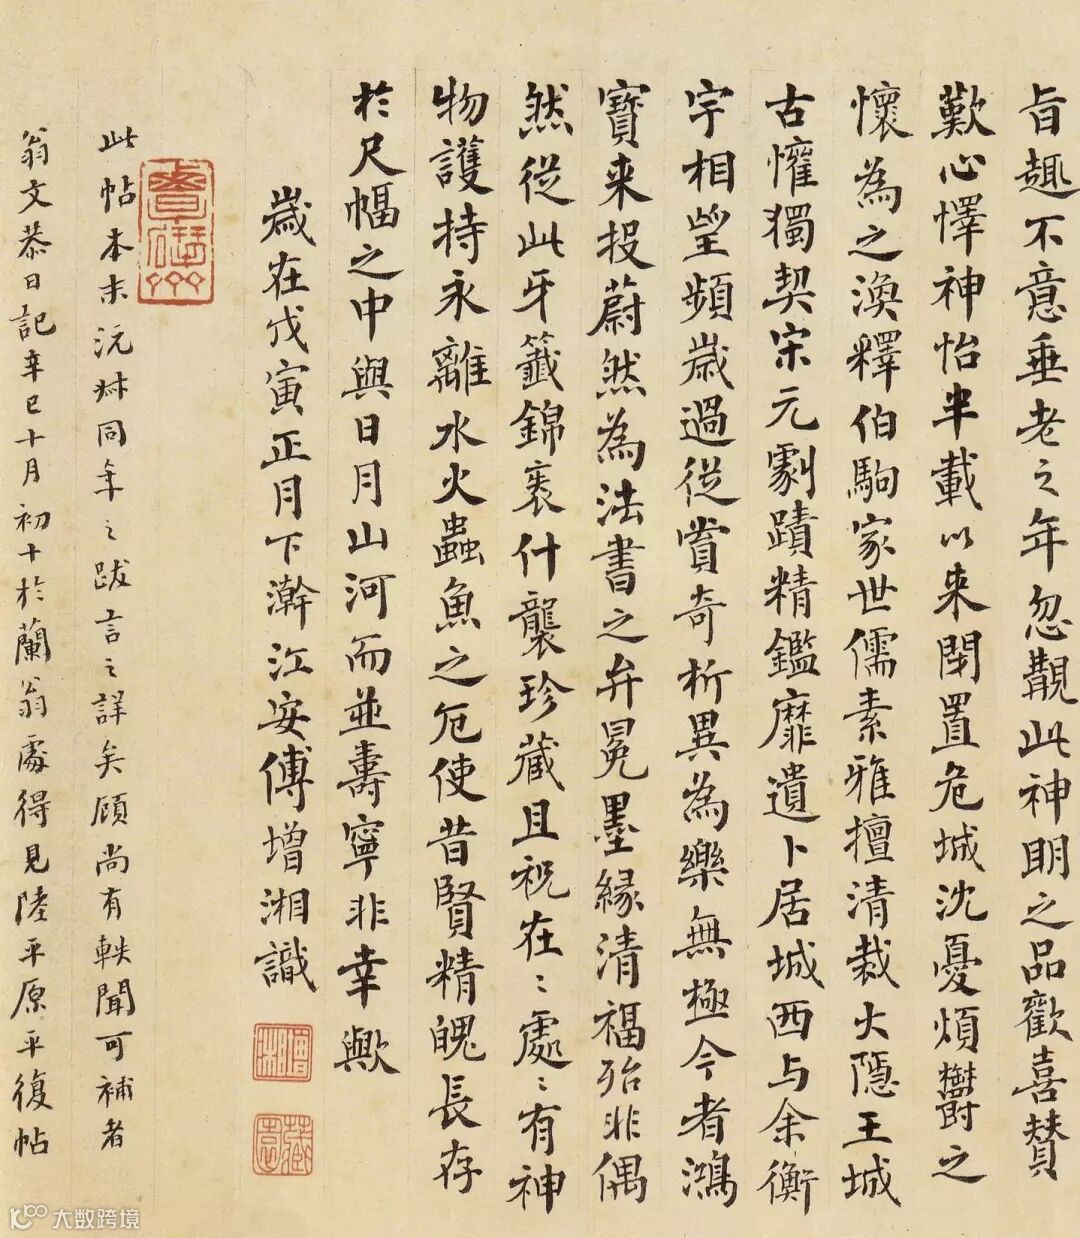 旨趣不意垂老之年忽覩此神明之品歡喜贊
歎心懌神怡半載以来閉置危城沈憂煩鬱之
懷為之渙釋伯駒家世儒素雅擅清裁大隱王城
古懽獨契宋元劇蹟精鑑靡遺卜居城西与余衡
宇相望頻歲過從賞奇析異為樂無極今者鴻
寶来投蔚然為法書之弁冕墨緣清福殆非偶
然從此牙籤錦裹什襲珍藏且祝在〻處〻有神
物護持永離水火蟲魚之厄使昔賢精魄長存
於尺幅之中與日月山河而並壽寧非幸歟
歲在戊寅正月下澣江安傅增湘識
增湘
藏園
此帖本末沅叔同年之跋言之詳矣顧尚有軼聞可補者
翁文恭日記辛巳十月初十於蘭翁處得見陸平原平復帖
大数跨境